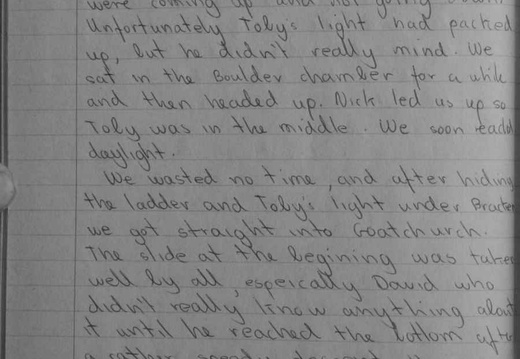 were coming up and not going down
Unfortunately Toby's light had packed
up, but he didn't really mind. We
sat in the Boulder chamber for a while
and then headed up. Nick led us up so
Toby was in the middle. We soon
daylight.
We wasted no time, and after hiding
the ladder and Toby's light under
we got straight into Goatchurch.
The slide at the begining was taken
well by all, espeically David who
didn't really know anything about
it until he reached the bottom after
a rather speedy